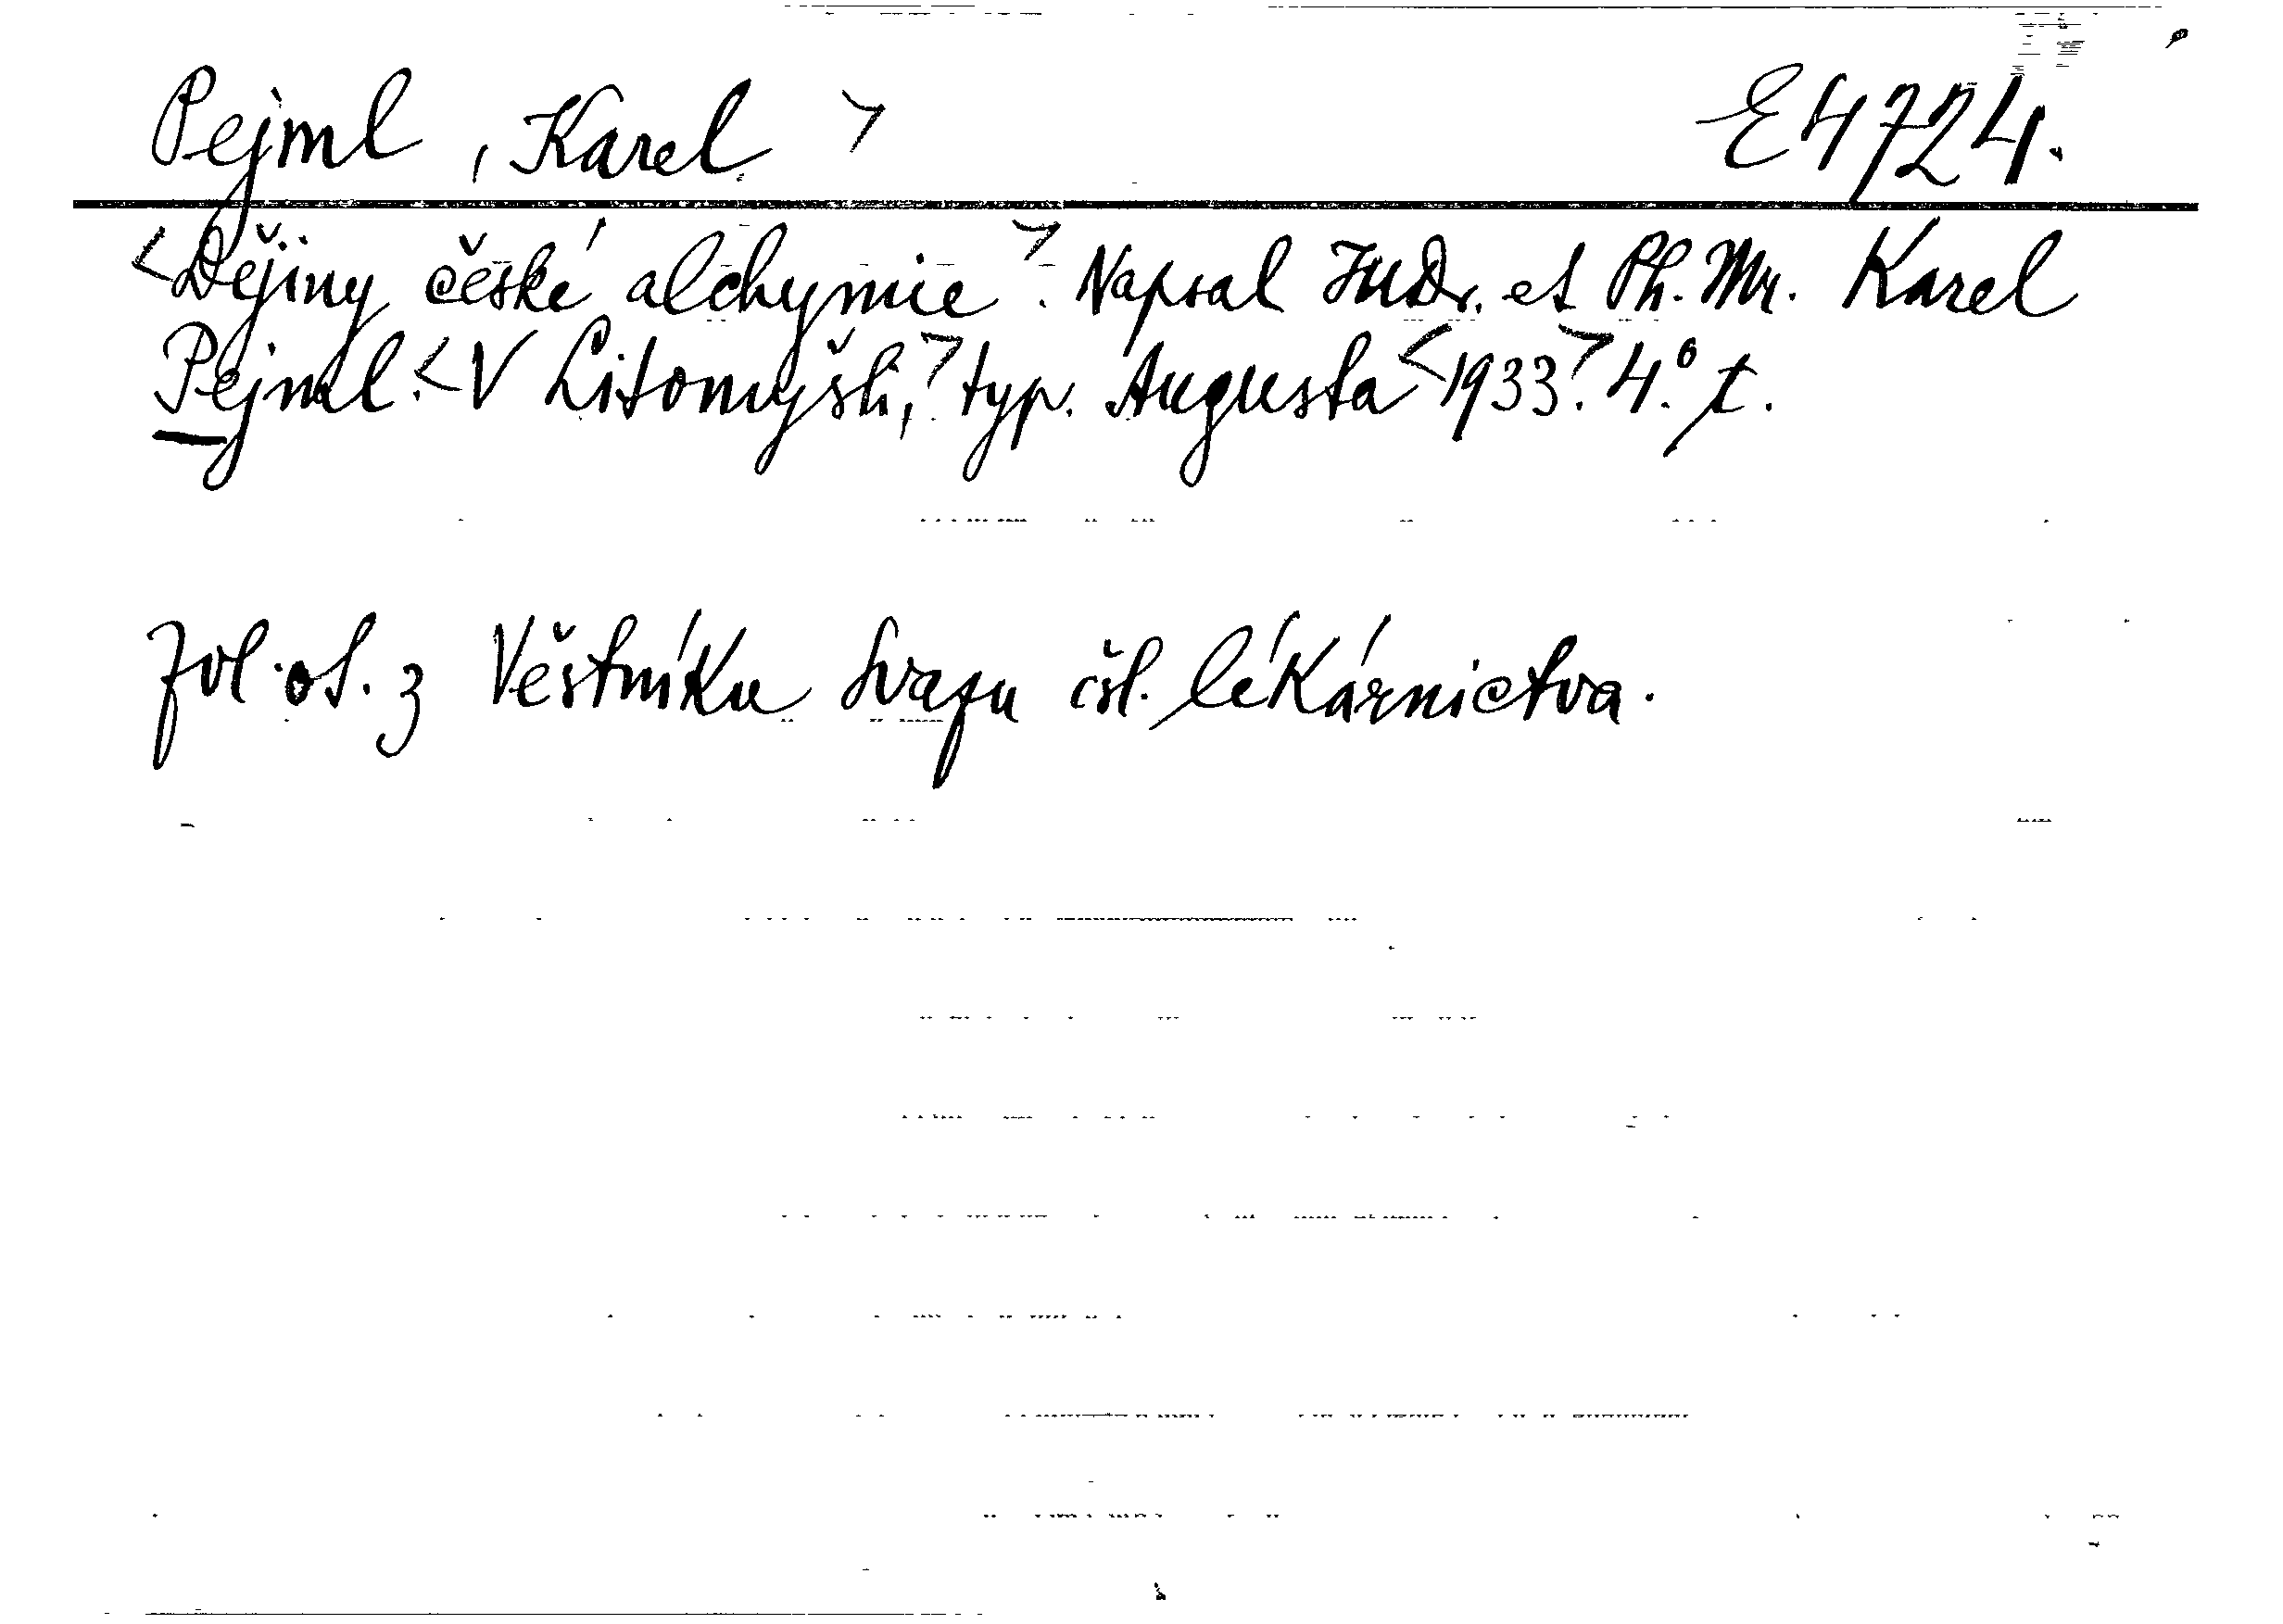 Pejml, Karel > E 4724.
<Dějiny české alchymie>. Napsal JUDr. et Ph. Mr. Karel
Pejml. <V Litomyšli,> typ. Augusta <1933>. 4.° t.
Zvl. ot. z Věstníku Svazu čsl. lékárnictva.